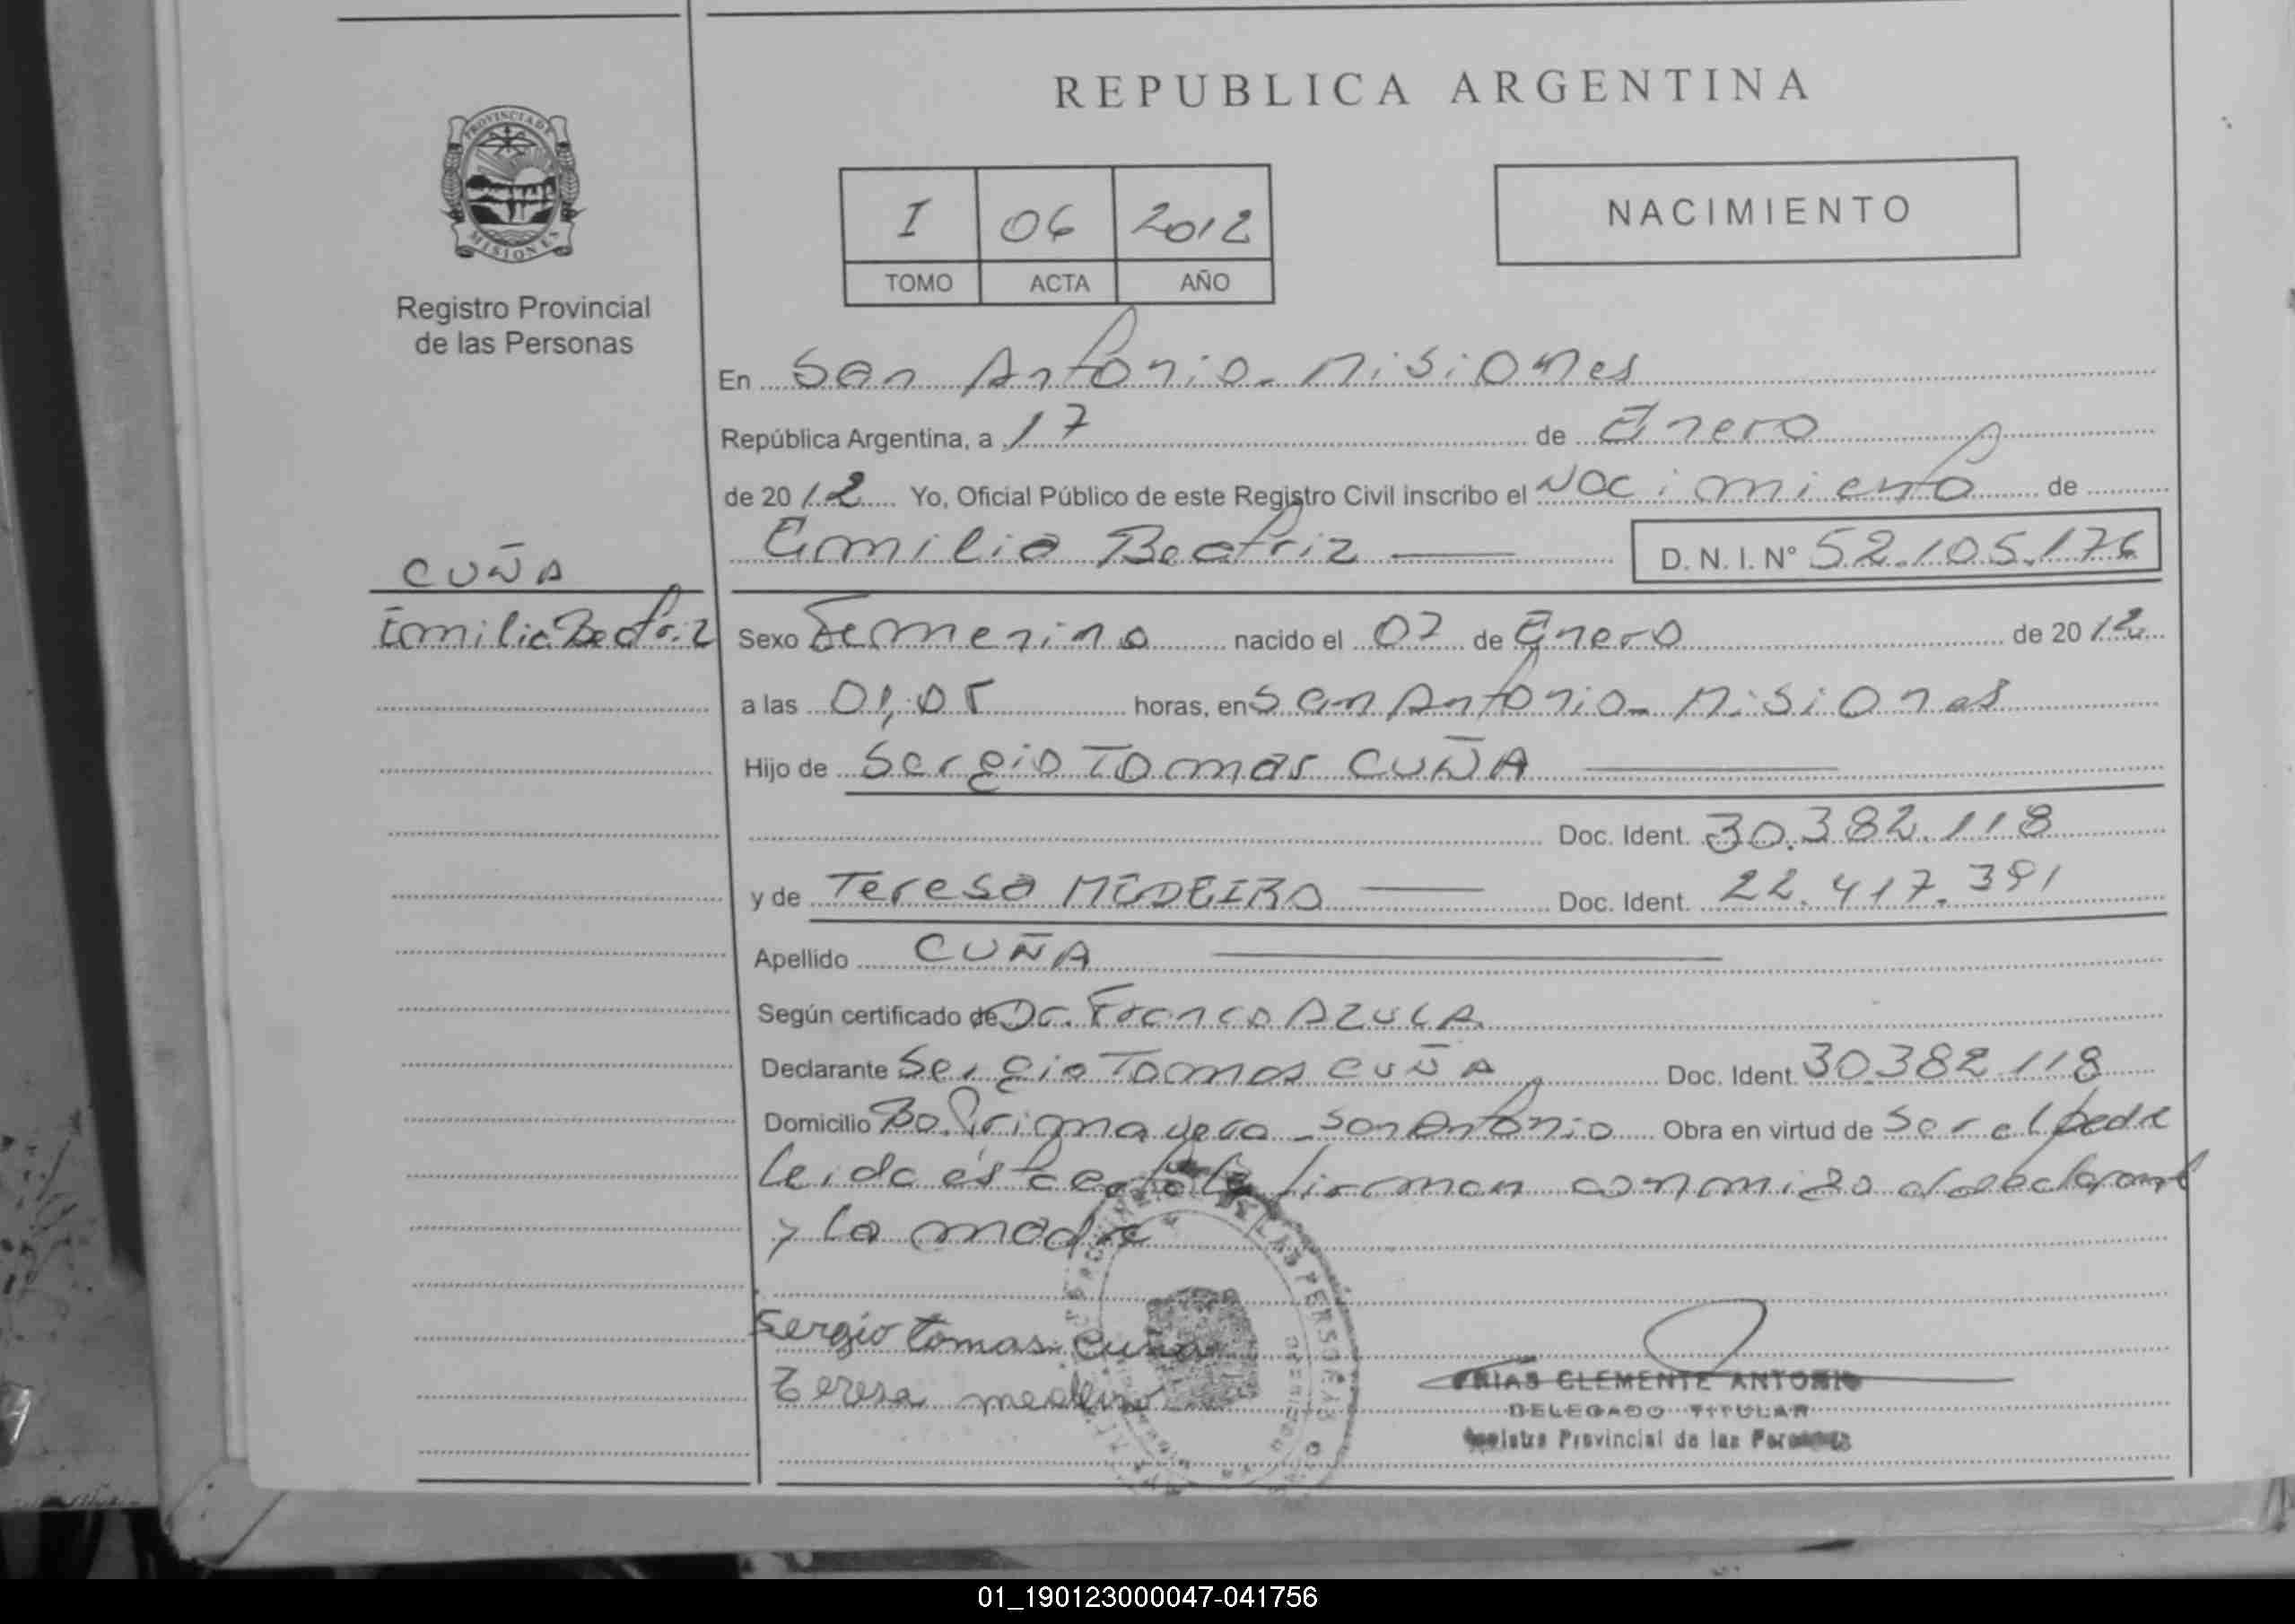 REPUBLICA ARGENTINA
PROVINCIA DE
MISIONES
Registro Provincial
de las Personas
I 06 2012
TOMO ACTA AÑO
NACIMIENTO
En San Antonio - Misiones
República Argentina, a 17 de Enero
de 2012 Yo, Oficial Público de este Registro Civil inscribo el Nacimiento de
Emilia Beatriz D. N. I. Nº 52.105.176
CUÑA
Emilia Beatriz
Sexo Femenino nacido el 07 de Enero de 2012
a las 01,05 horas, en San Antonio - Misiones
Hijo de Sergio Tomas CUÑA
Doc. Ident. 30.382.118
y de Teresa MEDEIRO Doc. Ident. 22.417.391
Apellido CUÑA
Según certificado de Dr. Franco AZULA
Declarante Sergio Tomas CUÑA Doc. Ident. 30.382.118
Domicilio Bo. Primavera - San Antonio Obra en virtud de Ser el padre
Leida esta acta la firman conmigo el declarante
y la madre
Sergio tomas Cuña
Teresa medeiro
FRIAS CLEMENTE ANTONIO
DELEGADO TITULAR
Registro Provincial de las Personas
DE LAS PERSONAS
01_190123000047-041756